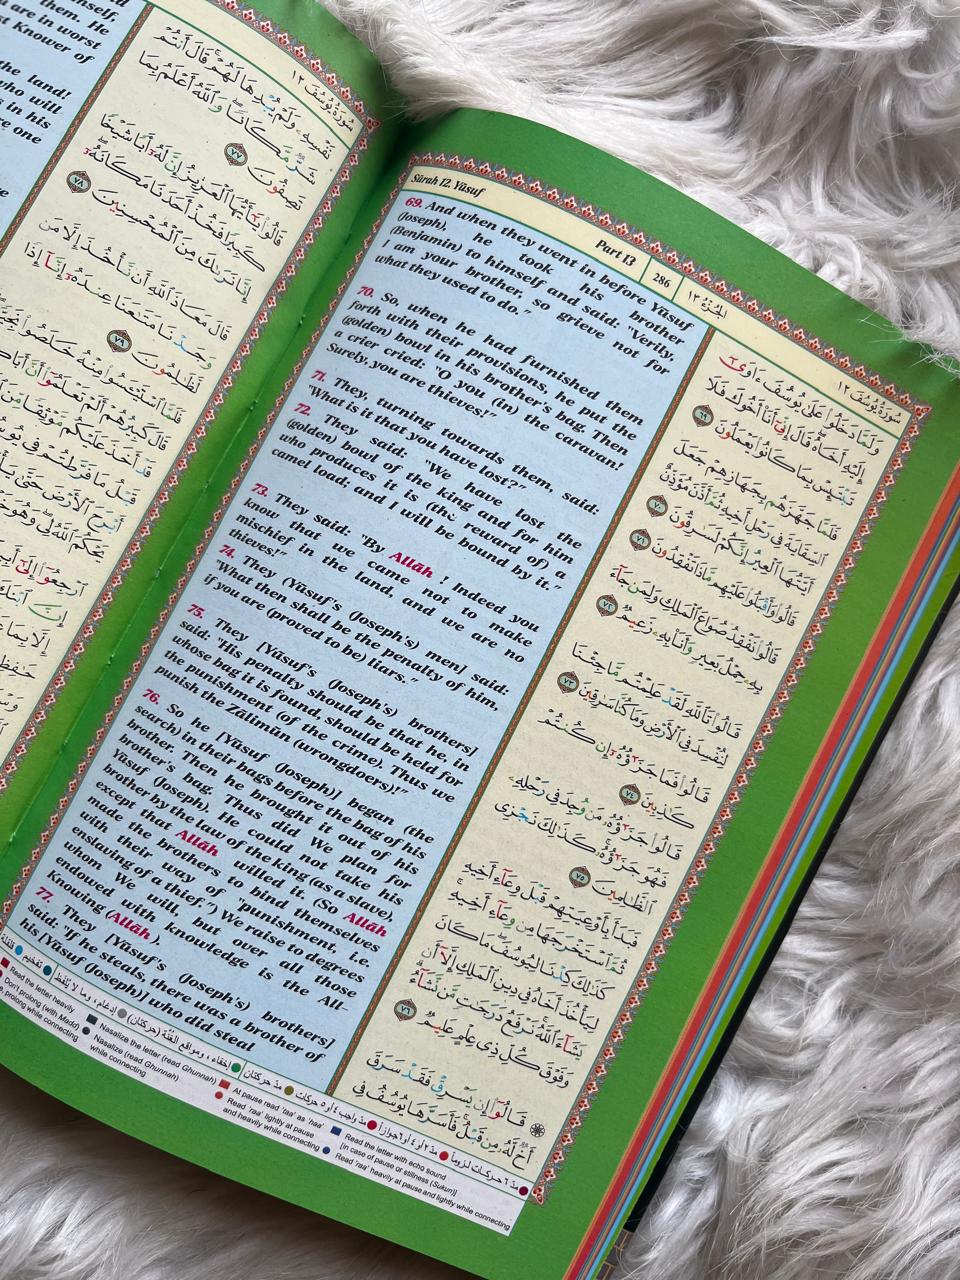 imself,
them. He
are in worst
Knower of
the land!
who will
s in his
one
سُورَةُ يُوسُفَ ١٢
نَفْسِهِۦ وَلَمْ يُبْدِهَا لَهُمْ ۚ قَالَ أَنتُمْ
شَرٌّ مَّكَانًا ۖ وَٱللَّهُ أَعْلَمُ بِمَا
تَصِفُونَ ٧٧
قَالُوا۟ يَٰٓأَيُّهَا ٱلْعَزِيزُ إِنَّ لَهُۥٓ أَبًا شَيْخًا
كَبِيرًا فَخُذْ أَحَدَنَا مَكَانَهُۥٓ ۖ
إِنَّا نَرَىٰكَ مِنَ ٱلْمُحْسِنِينَ ٧٨
قَالَ مَعَاذَ ٱللَّهِ أَن نَّأْخُذَ إِلَّا مَن
وَجَدْنَا مَتَٰعَنَا عِندَهُۥٓ إِنَّآ إِذًا
لَّظَٰلِمُونَ ٧٩
فَلَمَّا ٱسْتَيْـَٔسُوا۟ مِنْهُ خَلَصُوا۟
قَالَ كَبِيرُهُمْ أَلَمْ تَعْلَمُوٓا۟ أَنَّ
قَدْ أَخَذَ عَلَيْكُم مَّوْثِقًا مِّنَ
قَبْلُ مَا فَرَّطتُمْ فِى
أَبْرَحَ ٱلْأَرْضَ حَتَّىٰ
يَحْكُمَ ٱللَّهُ لِى ۖ وَهُوَ
ٱرْجِعُوٓا۟ إِلَىٰٓ
إِنَّ ٱبْنَكَ
إِلَّا بِمَا
Sûrah 12. Yûsuf
Part 13
286
الجزء ١٣
سُورَةُ يُوسُفَ ١٢
69. And when they went in before Yûsuf
(Joseph), he took his brother
(Benjamin) to himself and said: "Verily,
I am your brother, so grieve not for
what they used to do."
70. So, when he had furnished them
forth with their provisions, he put the
(golden) bowl in his brother's bag. Then
a crier cried: "O you (in) the caravan!
Surely, you are thieves!"
71. They, turning towards them, said:
"What is it that you have lost?"
72. They said: "We have lost the
(golden) bowl of the king and for him
who produces it is (the reward of) a
camel load; and I will be bound by it."
73. They said: "By Allâh ! Indeed you
know that we came not to make
mischief in the land, and we are no
thieves!"
74. They (Yûsuf's (Joseph's) men] said:
"What then shall be the penalty of him,
if you are (proved to be) liars."
75. They [Yûsuf's (Joseph's) brothers]
said: "His penalty should be that he, in
whose bag it is found, should be held for
the punishment (of the crime). Thus we
punish the Zâlimûn (wrongdoers)!"
76. So he [Yûsuf (Joseph)] began (the
search) in their bags before the bag of his
brother. Then he brought it out of his
brother's bag. Thus did We plan for
Yûsuf (Joseph). He could not take his
brother by the law of the king (as a slave)
except that Allâh willed it. (So Allâh
made the brothers to bind themselves
with their way of "punishment, i.e.
enslaving of a thief.") We raise to degrees
whom We will, but over all those
endowed with knowledge is the All-
Knowing (Allâh).
77. They [Yûsuf's (Joseph's) brothers]
said: "If he steals, there was a brother of
his [Yûsuf (Joseph)] who did steal
وَلَمَّا دَخَلُوا۟ عَلَىٰ يُوسُفَ ءَاوَىٰٓ
إِلَيْهِ أَخَاهُ ۖ قَالَ إِنِّىٓ أَنَا۠ أَخُوكَ فَلَا
تَبْتَئِسْ بِمَا كَانُوا۟ يَعْمَلُونَ ٦٩
فَلَمَّا جَهَّزَهُم بِجَهَازِهِمْ جَعَلَ
ٱلسِّقَايَةَ فِى رَحْلِ أَخِيهِ ثُمَّ أَذَّنَ مُؤَذِّنٌ
أَيَّتُهَا ٱلْعِيرُ إِنَّكُمْ لَسَٰرِقُونَ ٧٠
قَالُوا۟ وَأَقْبَلُوا۟ عَلَيْهِم مَّاذَا تَفْقِدُونَ ٧١
قَالُوا۟ نَفْقِدُ صُوَاعَ ٱلْمَلِكِ وَلِمَن جَآءَ
بِهِۦ حِمْلُ بَعِيرٍ وَأَنَا۠ بِهِۦ زَعِيمٌ ٧٢
قَالُوا۟ تَٱللَّهِ لَقَدْ عَلِمْتُم مَّا جِئْنَا
لِنُفْسِدَ فِى ٱلْأَرْضِ وَمَا كُنَّا سَٰرِقِينَ ٧٣
قَالُوا۟ فَمَا جَزَٰٓؤُهُۥٓ إِن كُنتُمْ
كَٰذِبِينَ ٧٤
قَالُوا۟ جَزَٰٓؤُهُۥ مَن وُجِدَ فِى رَحْلِهِۦ
فَهُوَ جَزَٰٓؤُهُۥ ۚ كَذَٰلِكَ نَجْزِى
ٱلظَّٰلِمِينَ ٧٥
فَبَدَأَ بِأَوْعِيَتِهِمْ قَبْلَ وِعَآءِ أَخِيهِ
ثُمَّ ٱسْتَخْرَجَهَا مِن وِعَآءِ أَخِيهِ ۚ
كَذَٰلِكَ كِدْنَا لِيُوسُفَ ۖ مَا كَانَ
لِيَأْخُذَ أَخَاهُ فِى دِينِ ٱلْمَلِكِ إِلَّآ أَن
يَشَآءَ ٱللَّهُ ۚ نَرْفَعُ دَرَجَٰتٍ مَّن نَّشَآءُ ۗ
وَفَوْقَ كُلِّ ذِى عِلْمٍ عَلِيمٌ ٧٦
۞ قَالُوٓا۟ إِن يَسْرِقْ فَقَدْ سَرَقَ
أَخٌ لَّهُۥ مِن قَبْلُ ۚ فَأَسَرَّهَا يُوسُفُ فِى
مدّ ٦ حركات لزوماً مدّ ٢ أو ٤ أو ٦ جوازاً مدّ واجب ٤ أو ٥ حركات مدّ حركتان إخفاء، ومواقع الغنّة (حركتان) إدغام، وما لا يُلفظ تفخيم قلقلة
Read the letter heavily
Don't prolong (with Madd)
prolong while connecting
Nasalize the letter (read Ghunnah)
Nasalize (read Ghunnah)
while connecting
At pause read 'raa' as 'raa'
Read 'raa' lightly at pause
and heavily while connecting
Read the letter with echo sound
[in case of pause or stillness (Sukun)]
Read 'raa' heavily at pause and lightly while connecting